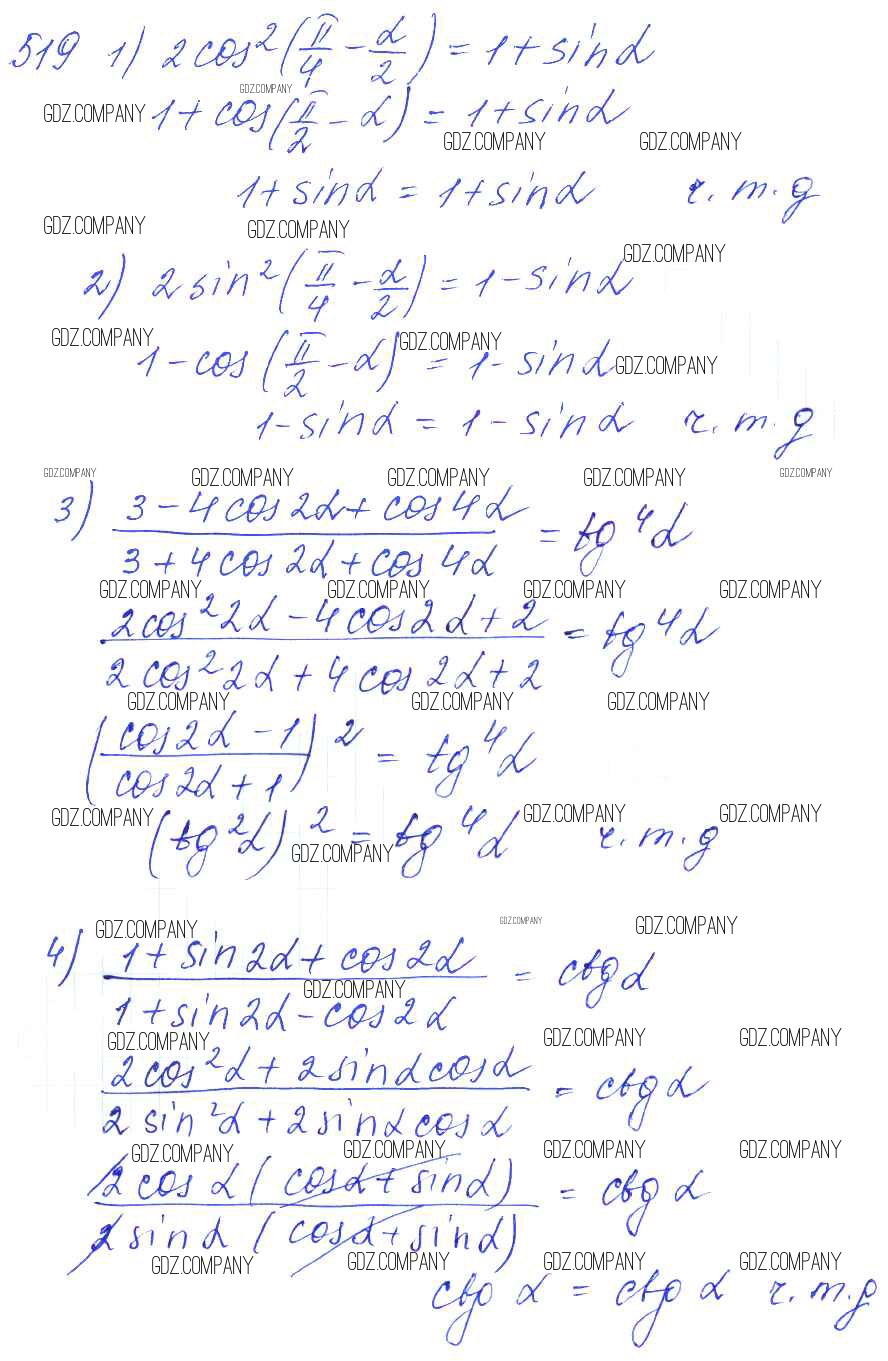 519 1) 2cos²(π/4 - α/2) = 1 + sinα
GDZ.COMPANY
GDZ.COMPANY 1 + cos(π/2 - α) = 1 + sinα
GDZ.COMPANY GDZ.COMPANY
1 + sinα = 1 + sinα ч.т.д
GDZ.COMPANY GDZ.COMPANY
GDZ.COMPANY
2) 2sin²(π/4 - α/2) = 1 - sinα
GDZ.COMPANY GDZ.COMPANY
1 - cos(π/2 - α) = 1 - sinα GDZ.COMPANY
1 - sinα = 1 - sinα ч.т.д
GDZ.COMPANY GDZ.COMPANY GDZ.COMPANY GDZ.COMPANY GDZ.COMPANY
3) (3 - 4cos2α + cos4α)/(3 + 4cos2α + cos4α) = tg⁴α
GDZ.COMPANY GDZ.COMPANY GDZ.COMPANY GDZ.COMPANY
(2cos²2α - 4cos2α + 2)/(2cos²2α + 4cos2α + 2) = tg⁴α
GDZ.COMPANY GDZ.COMPANY GDZ.COMPANY
((cos2α - 1)/(cos2α + 1))² = tg⁴α
GDZ.COMPANY GDZ.COMPANY GDZ.COMPANY
(tg²α)² = tg⁴α ч.т.д
GDZ.COMPANY
GDZ.COMPANY GDZ.COMPANY GDZ.COMPANY
4) (1 + sin2α + cos2α)/(1 + sin2α - cos2α) = ctgα
GDZ.COMPANY
GDZ.COMPANY GDZ.COMPANY GDZ.COMPANY
(2cos²α + 2sinαcosα)/(2sin²α + 2sinαcosα) = ctgα
GDZ.COMPANY GDZ.COMPANY GDZ.COMPANY GDZ.COMPANY
(2cosα(cosα + sinα))/(2sinα(cosα + sinα)) = ctgα
GDZ.COMPANY GDZ.COMPANY GDZ.COMPANY GDZ.COMPANY
ctgα = ctgα ч.т.д